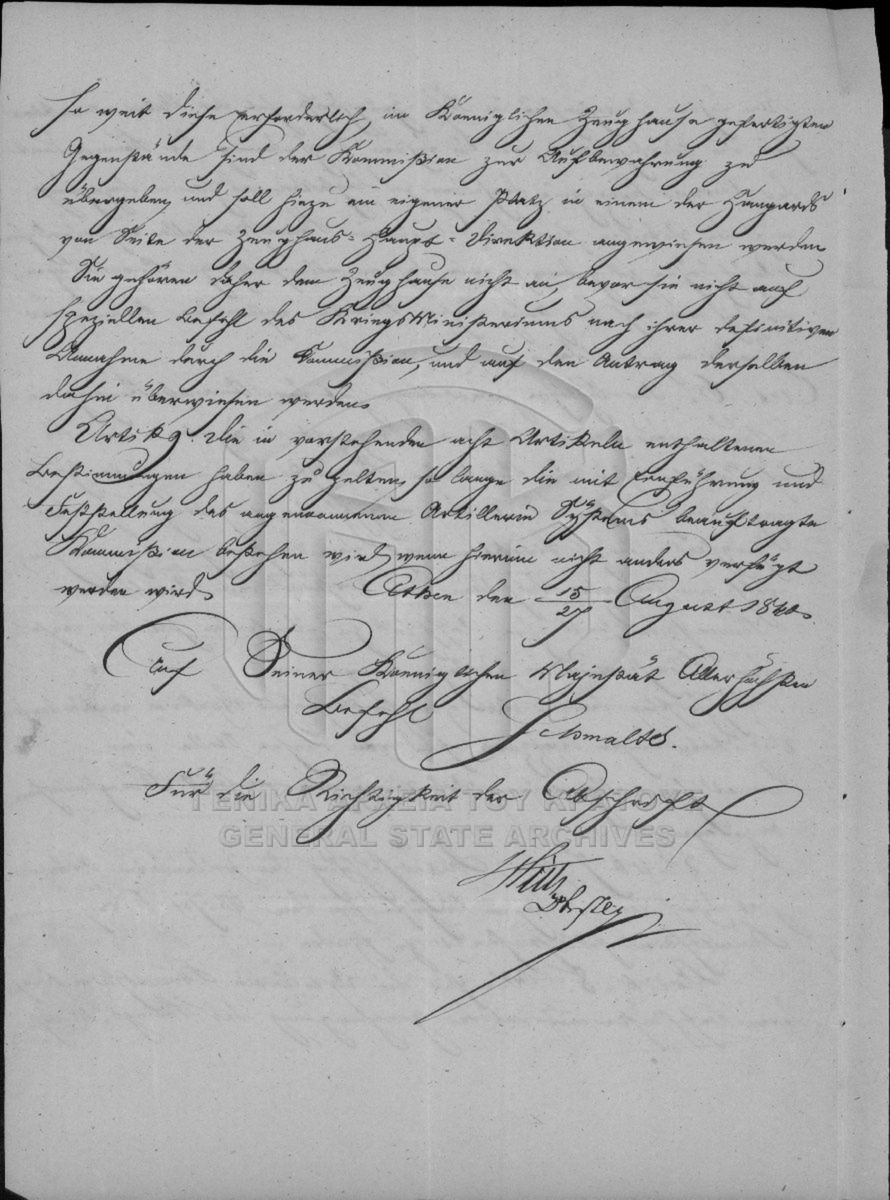 so weit diese erforderlich, im Koeniglichen Zeughause gefertigten
Gegenstände sind der Kommission zur Aufbewahrung zu
übergeben, und soll hiezu ein eigener Platz in einem der Hangards
von Seite der Zeughaus-Haupt-Direktion angewiesen werden
Sie gehören daher dem Zeughause nicht an, bevor sie nicht auf
speziellen Befehl des KriegsMinisteriums nach ihrer definitiven
Annahme durch die Kommission, und auf den Antrag derselben
dahin überwiesen werden.
Artik 9. Die in vorstehenden acht Artikeln enthaltenen
Bestimmungen haben zu gelten, so lange die mit Einführung und
Feststellung des angenommenen Artillerie Systems beauftragte
Kommission bestehen wird, wenn hierum nicht anders verfügt
werden wird.
Athen den 15/27 August 1840.
Auf Seiner Koeniglichen Majestät Allerhöchsten
Befehl
Schmaltz.
Für die Richtigkeit der Abschrift
ΓΕΝΙΚΑ ΑΡΧΕΙΑ ΤΟΥ ΚΡΑΤΟΥΣ
GENERAL STATE ARCHIVES